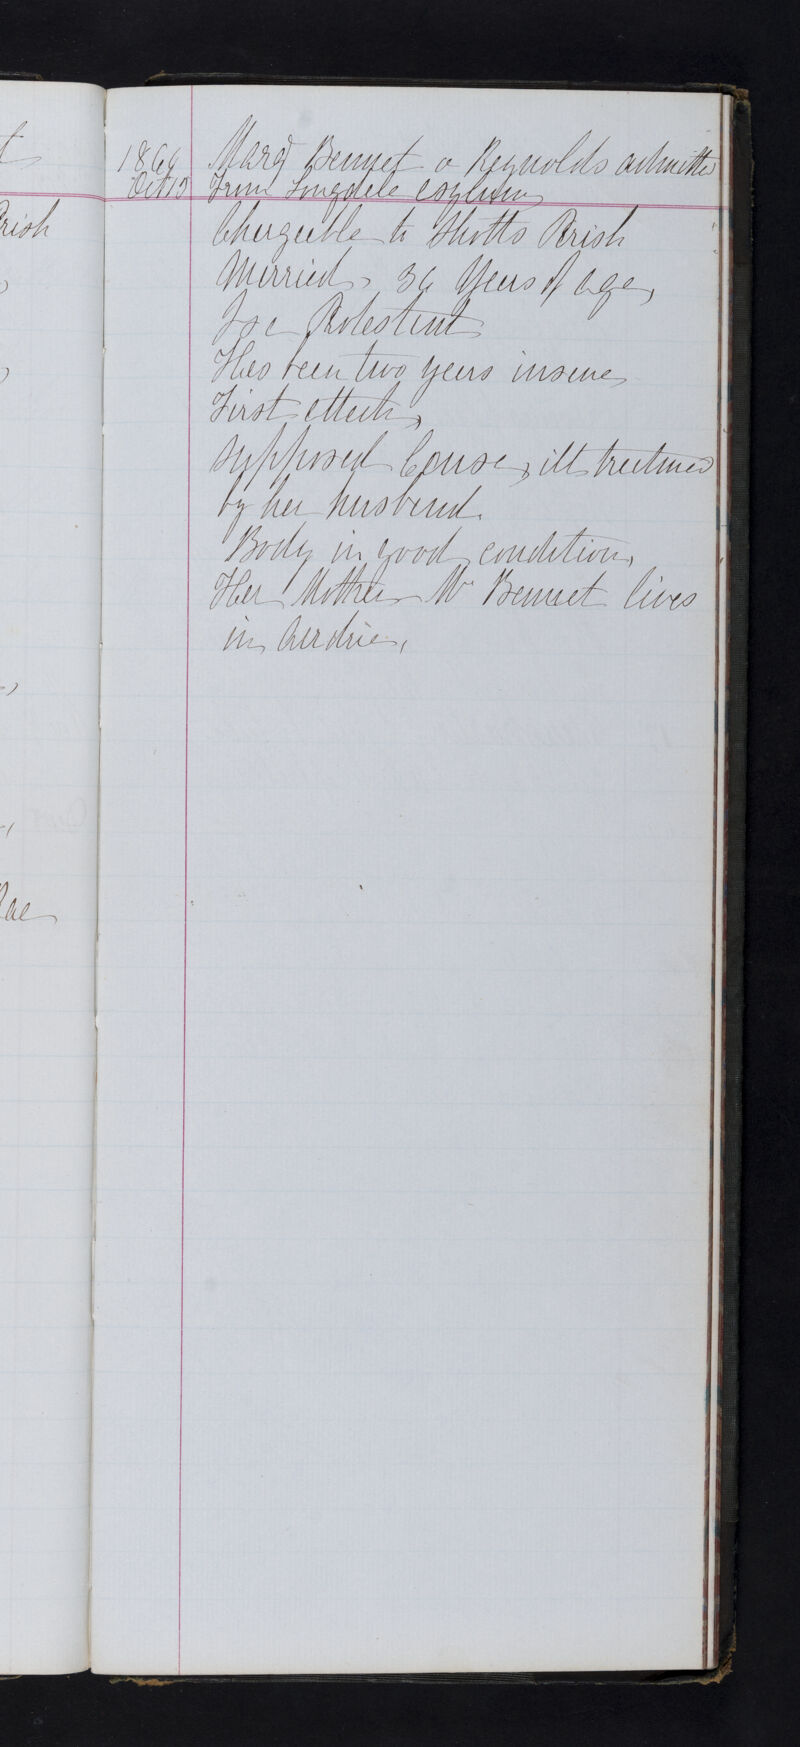 t
rish
Rae
1866 Marg Bennet or Reynolds admitted
Oct 13 From Longdale Asylum
Chargeable to Shotts Parish
Married, 36 Years of age,
Is a Protestant
Has been two years insane,
First attack,
Supposed Cause, ill treatment
by her husband.
Body in good condition,
Her Mother Mrs Bennet lives
in Airdrie,